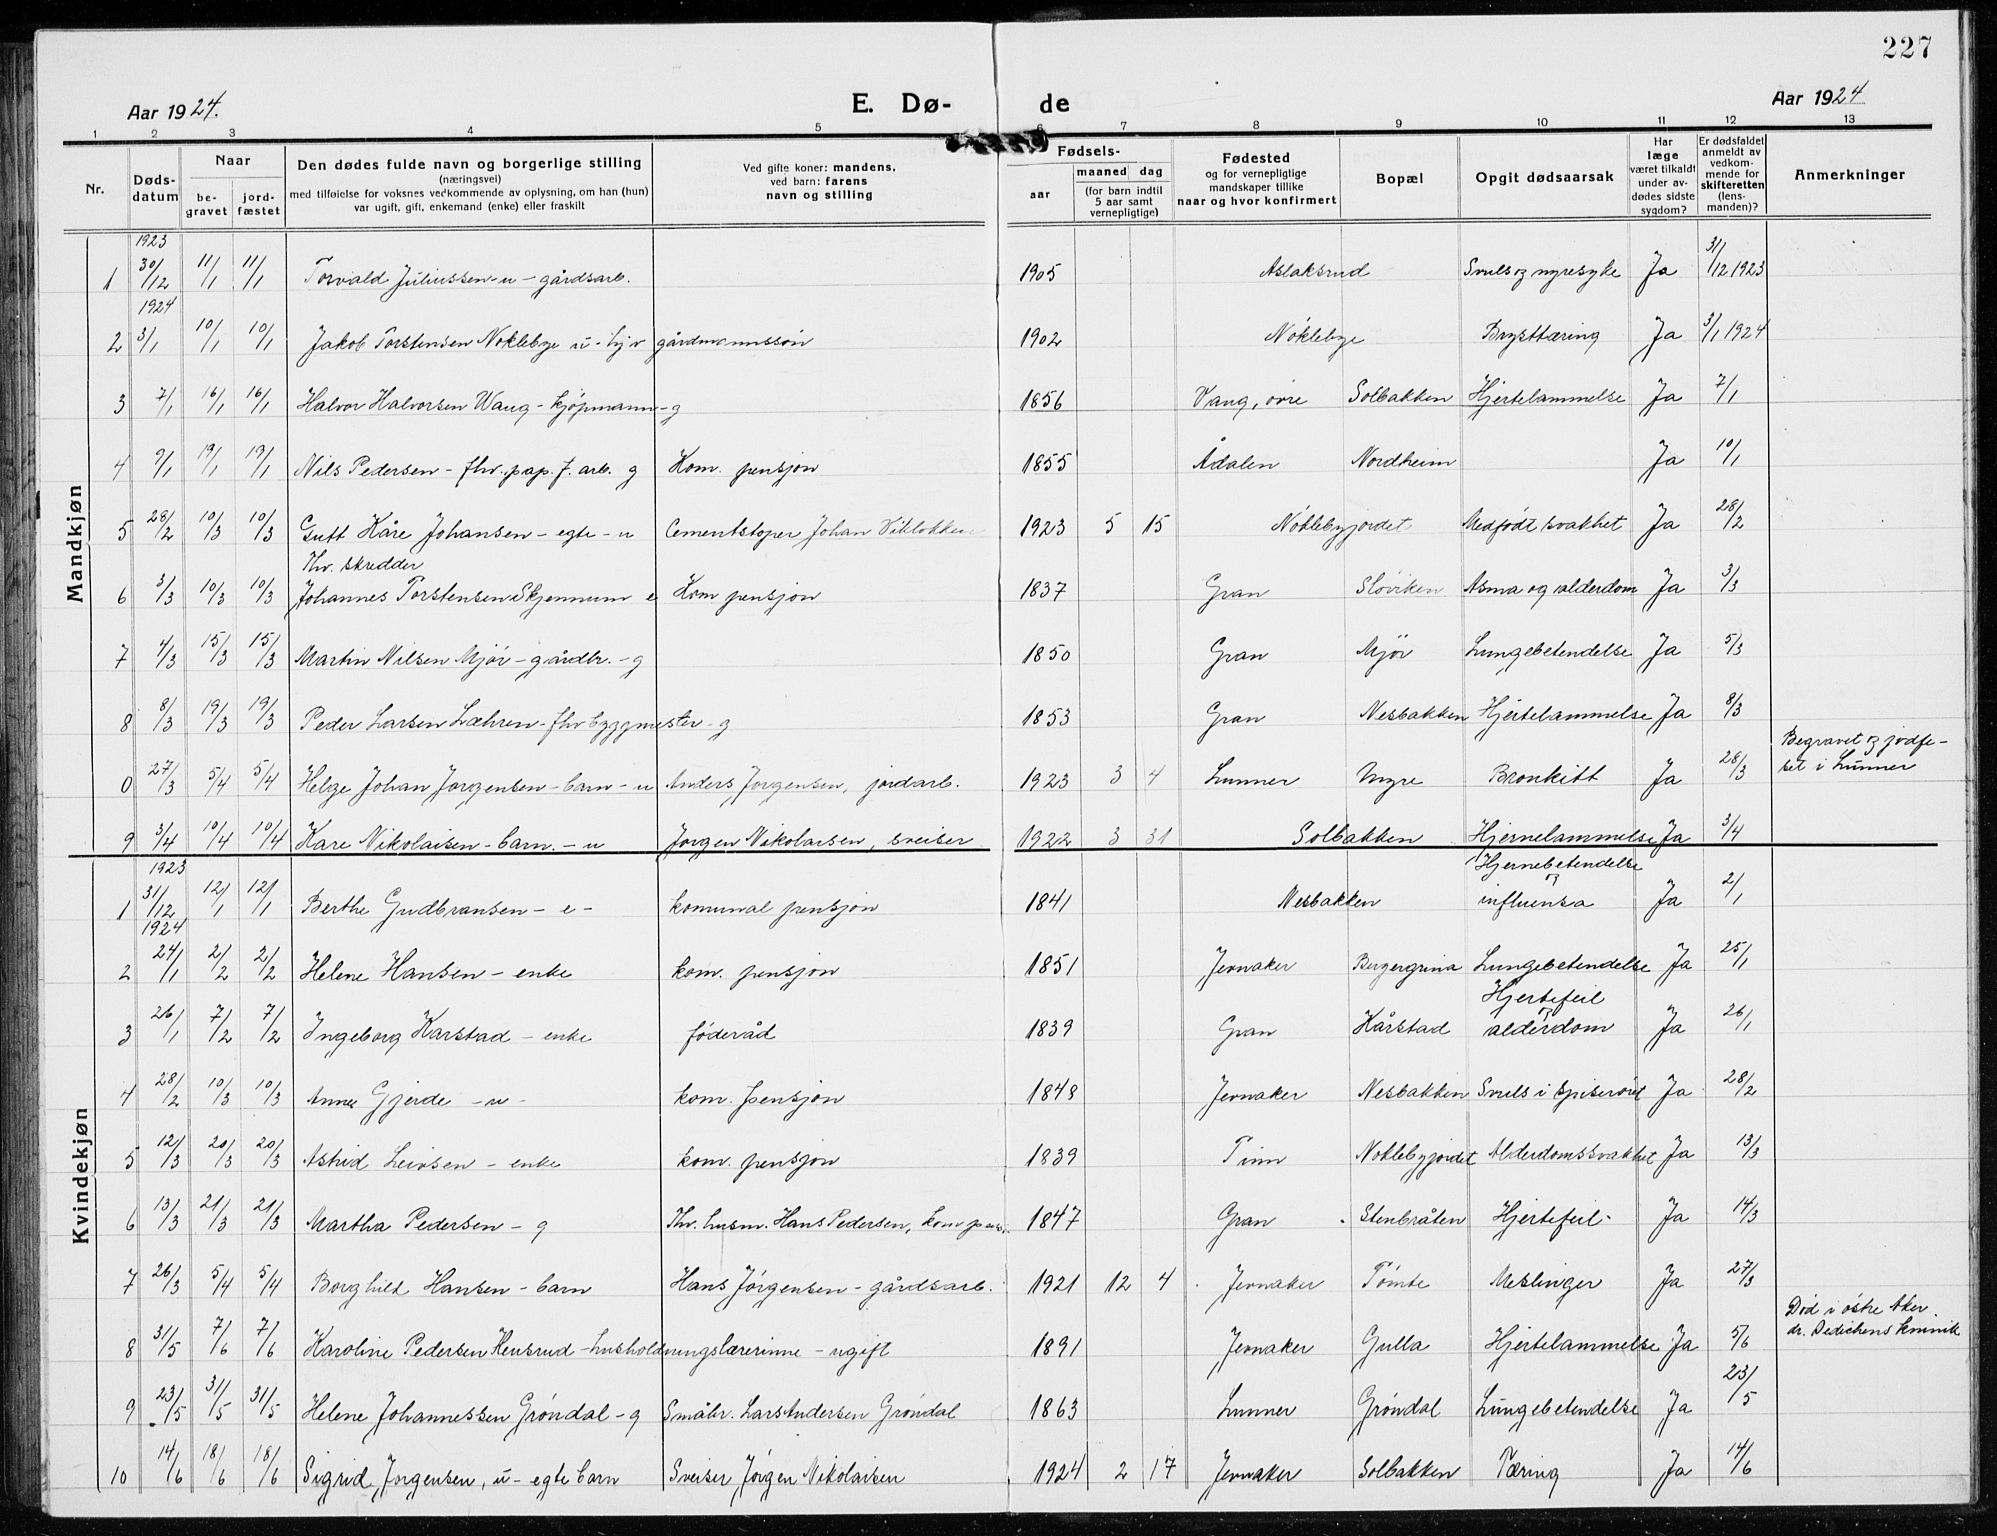 227
Aar 1924. E. Dø- de Aar 1924
1 2 3 4 5 6 7 8 9 10 11 12 13
Nr. Døds-datum Naar be-gravet jord-fæstet Den dødes fulde navn og borgerlige stilling (næringsvei) med tilføielse for voksnes vedkommende av oplysning, om han (hun) var ugift, gift, enkemand (enke) eller fraskilt Ved gifte koner: mandens, ved barn: farens navn og stilling Fødsels- aar maaned dag (for barn indtil 5 aar samt vernepligtige) Fødested og for vernepligtige mandskaper tillike naar og hvor konfirmert Bopæl Opgit dødsaarsak Har læge været tilkaldt under av-dødes sidste sygdom? Er dødsfaldet anmeldt av vedkom-mende for skifteretten (lens-manden)? Anmerkninger
Mandkjøn
1923
1 30/12 11/1 11/1 Torvald Juliussen - u - gårdsarb. 1905 Aslaksrud Svuls og nyresyke Ja 31/12 1923
1924
2 3/1 10/1 10/1 Jakob Torstensen Noklebye u - hjv gårdmannssön 1902 Nöklebye Brysttæring Ja 3/1 1924
3 7/1 16/1 16/1 Halvor Halvorsen Wang - kjøpmann - g 1856 Vang, övre Solbakken Hjertelammelse Ja 7/1
4 9/1 19/1 19/1 Nils Pedersen - fhv. pap. f. arb. g Kom. pensjon 1855 Ådalen Nordheim Ja 10/1
5 28/2 10/3 10/3 Gutt Kåre Johansen - egte - u Cementstøper Johan 1923 5 15 Nöklebyjordet Medfödt svakhet Ja 28/2
Fhv. skredder
6 3/3 10/3 10/3 Johannes Torstensen Skjennum e Kom pensjon 1837 Gran Slöviken Asma og alderdom Ja 3/3
7 4/3 15/3 15/3 Martin Nilsen Mjör - gårdbr. - g 1850 Gran Mjör Lungebetendelse Ja 5/3
8 8/3 19/3 19/3 Peder Larsen Læhren - fhv byggmester - g 1853 Gran Nesbakken Hjertelammelse Ja 8/3
0 27/3 5/4 5/4 Helge Johan Jorgensen - barn - u Anders Jorgensen, jordarb. 1923 3 4 Lunner Myre Bronkitt Ja 28/3 Begravet og jodfe-
tet i Lunner
9 3/4 10/4 10/4 Kare Nikolaisen - barn. - u Jorgen Nikolaisen, sveiser 1922 3 31 Solbakken Hjernelammelse Ja 3/4
Kvindekjøn
1923
1 31/12 12/1 12/1 Berthe Gudbransen - e - komunal pensjon 1841 Nesbakken Hjernebetendelse og influensa Ja 2/1
1924
2 24/1 2/2 2/2 Helene Hansen - enke kom. pensjon 1851 Jevnaker Bergergrina Lungebetendelse Ja 25/1
3 26/1 7/2 7/2 Ingeborg Karstad - enke föderåd 1839 Gran Kårstad Hjertefeil og alderdom Ja 26/1
4 28/2 10/3 10/3 Anne Gjerde - u - kom. pensjon 1848 Jevnaker Nesbakken Svuls i spiserörét Ja 28/2
5 12/3 20/3 20/3 Astrid Leivsen - enke kom. pensjon 1839 Tinn Noklebyjordet Alderdomssvakhet Ja 13/3
6 13/3 21/3 21/3 Martha Pedersen - g Fhv. husm. Hans Pedersen, kom pens. 1847 Gran Stenbråten Hjertefeil Ja 14/3
7 26/3 5/4 5/4 Borghild Hansen - barn Hans Jörgensen - gårdsarb. 1921 12 4 Jevnaker Tömte Meslinger Ja 27/3
8 31/5 7/6 7/6 Karoline Pedersen Hensrud - husholdningslærerinne - ugift 1891 Jevnaker Gulla Hjertelammelse Ja 5/6 Död i östre Aker.
dr. Dedichens kinnik
9 23/5 31/5 31/5 Helene Johannessen Gröndal - g Småbr. Lars Andersen Gröndal 1863 Lunner Gröndal Lungebetendelse Ja 23/5
10 14/6 18/6 18/6 Sigrid Jorgensen, u - egte barn Sveiser Jörgen Nikolaisen 1924 2 17 Jevnaker Solbakken Tæring Ja 14/6